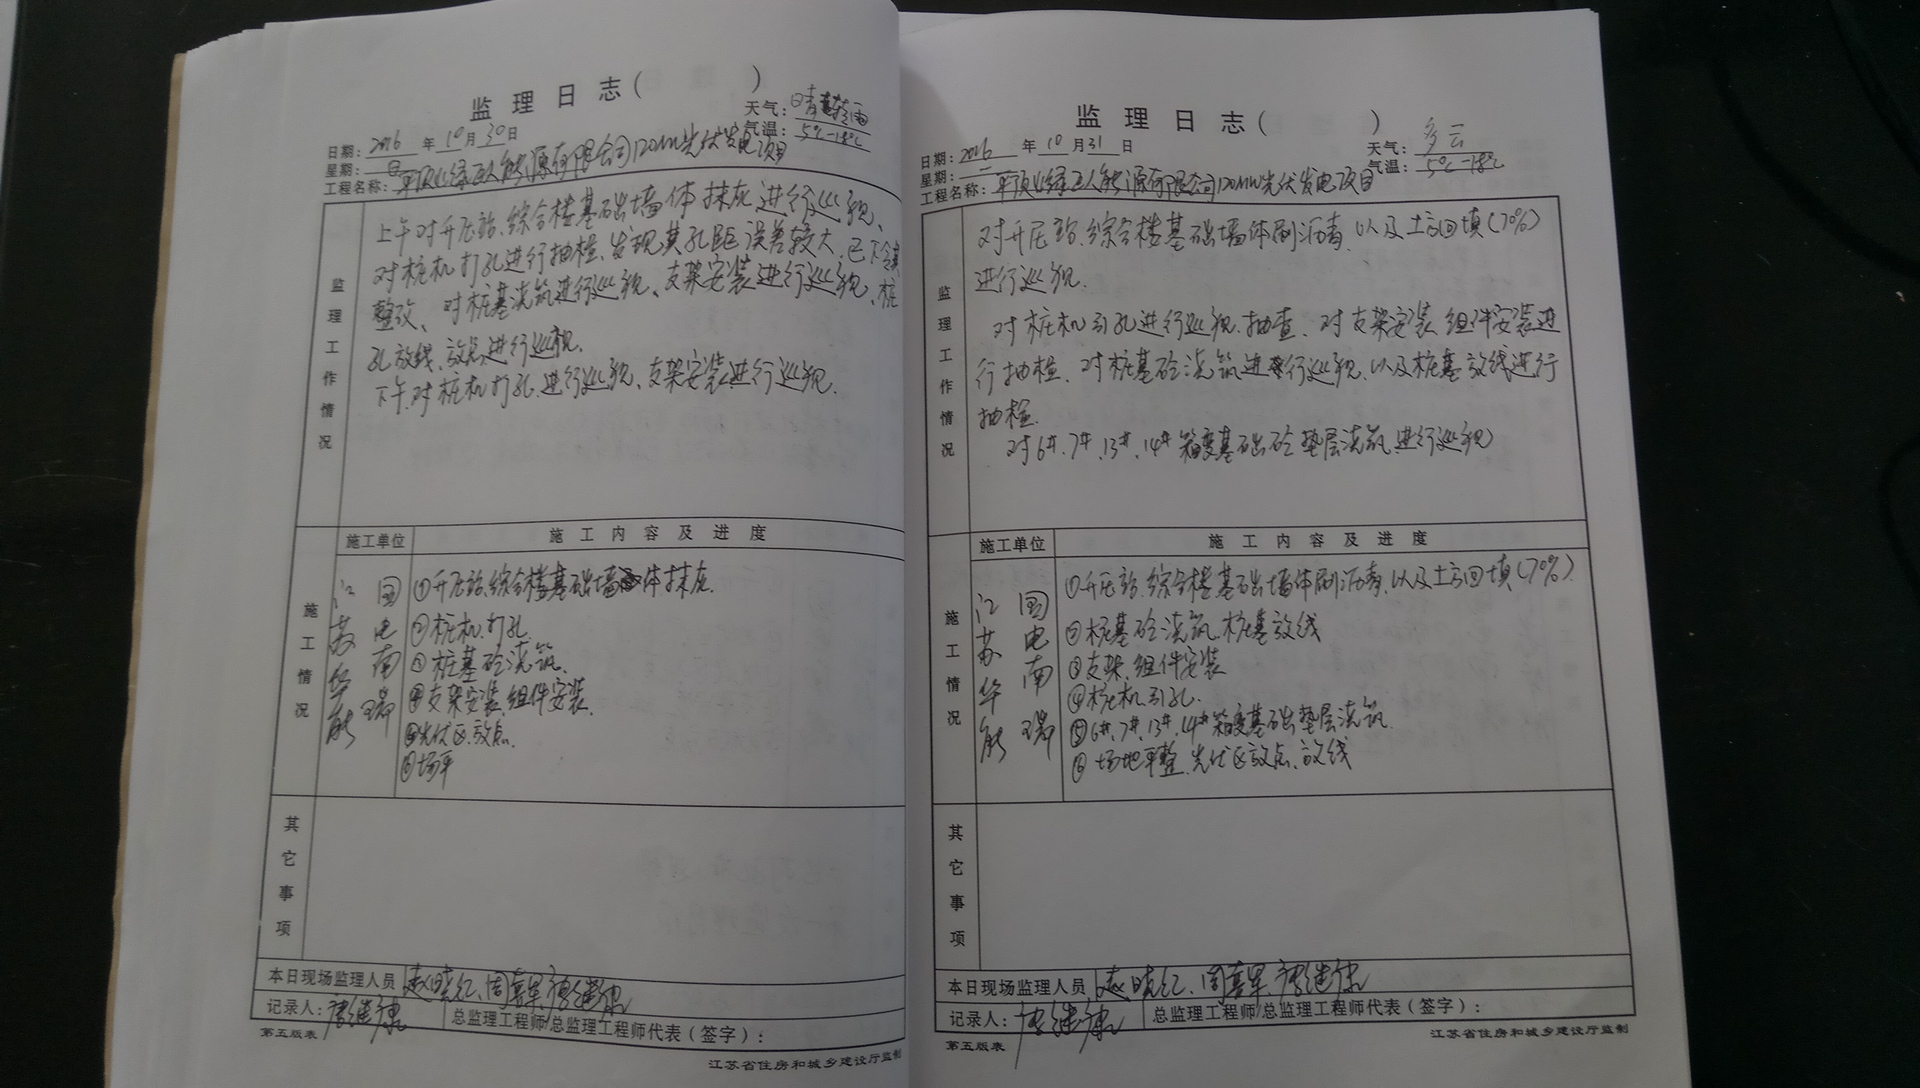 监理日志（ ）
天气：晴转雨
日期：2016年10月30日
气温：5℃-18℃
星期：日
工程名称：平顶山绿巨人能源有限公司120MW光伏发电项目
监理工作情况
上午对开压站、综合楼基础墙体抹灰进行巡视、
对桩机打孔进行抽检、发现其孔距误差较大、已下令其
整改、对桩基浇筑进行巡视、支架安装进行巡视、桩
孔放线、放点进行巡视.
下午.对桩机打孔.进行巡视、支架安装进行巡视.
施工情况
施工单位
施工内容及进度
江苏华能
国电南瑞
①开压站、综合楼基础墙体抹灰.
②桩机.打孔.
③桩基砼浇筑.
④支架安装、组件安装.
⑤光伏区.放点.
⑥场平
其它事项
本日现场监理人员 赵晓红、周喜军 唐继康
记录人：唐继康 总监理工程师/总监理工程师代表（签字）：
第五版表
江苏省住房和城乡建设厅监制
监理日志（ ）
天气：多云
日期：2016年10月31日
气温：5℃-18℃
星期：一
工程名称：平顶山绿巨人能源有限公司120MW光伏发电项目
监理工作情况
对开压站、综合楼基础墙体刷沥青、以及土方回填(70%)
进行巡视.
对桩机引孔进行巡视.抽查、对支架安装.组件安装进
行抽检、对桩基砼浇筑进行巡视、以及桩基放线进行
抽检.
对6#、7#、13#、14#箱变基础砼垫层浇筑.进行巡视
施工情况
施工单位
施工内容及进度
江苏华能
国电南瑞
①开压站.综合楼基础墙体刷沥青、以及土方回填(70%)
②桩基砼浇筑.桩基放线
③支架.组件安装
④桩机引孔.
⑤6#、7#、13#、14#箱变基础垫层浇筑.
⑥场地平整.光伏区放点、放线
其它事项
本日现场监理人员 赵晓红、周喜军 唐继康
记录人：唐继康 总监理工程师/总监理工程师代表（签字）：
第五版表
江苏省住房和城乡建设厅监制